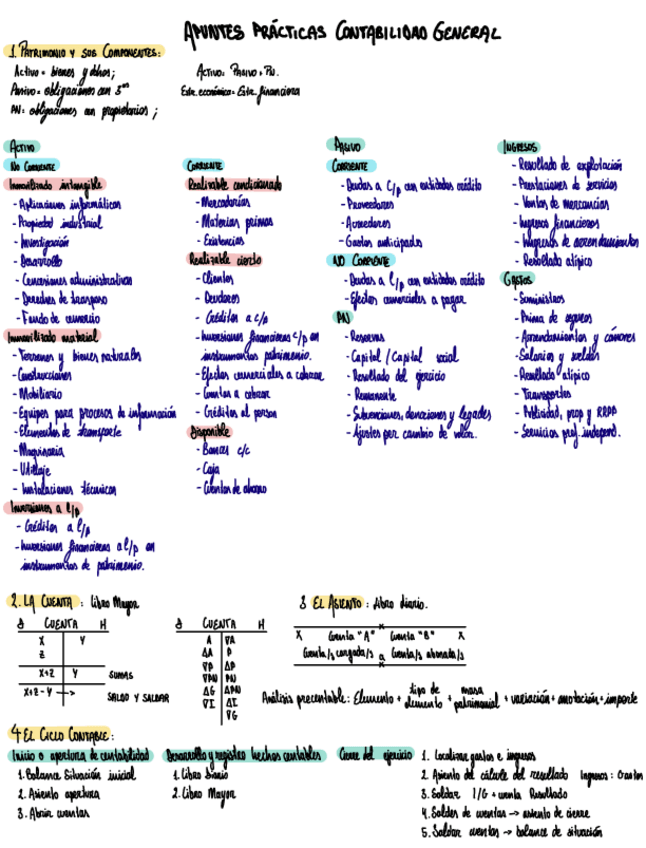 APUNTES PRÁCTICAS CONTABILIDAD GENERAL
1. PATRIMONIO Y SUS COMPONENTES:
Activo = bienes y dchos;
Pasivo = obligaciones con 3ºˢ
PN = obligaciones con propietarios;
ACTIVO = PASIVO + PN.
Estr. económica = Estr. financiera
ACTIVO
NO CORRIENTE
Inmovilizado intangible
- Aplicaciones informáticas
- Propiedad industrial
- Investigación
- Desarrollo
- Concesiones administrativas
- Derechos de traspaso
- Fondo de comercio
Inmovilizado material
- Terrenos y bienes naturales
- Construcciones
- Mobiliario
- Equipos para procesos de información
- Elementos de transporte
- Maquinaria
- Utillaje
- Instalaciones técnicas
Inversiones a l/p
- Créditos a l/p
- Inversiones financieras a l/p en
instrumentos de patrimonio.
CORRIENTE
Realizable condicionado
- Mercaderías
- Materias primas
- Existencias
Realizable cierto
- Clientes
- Deudores
- Créditos a c/p
- Inversiones financieras c/p en
instrumentos patrimonio.
- Efectos comerciales a cobrar
- Cuentas a cobrar
- Créditos al person
Disponible
- Bancos c/c
- Caja
- Cuentas de ahorro
PASIVO
CORRIENTE
- Deudas a c/p con entidades crédito
- Proveedores
- Acreedores
- Gastos anticipados
NO CORRIENTE
- Deudas a l/p con entidades crédito
- Efectos comerciales a pagar
PN
- Reservas
- Capital / Capital social
- Resultado del ejercicio
- Remanente
- Subvenciones, donaciones y legados
- Ajustes por cambio de valor.
INGRESOS
- Resultado de explotación
- Prestaciones de servicios
- Ventas de mercancías
- Ingresos financieros
- Ingresos de arrendamientos
- Resultado atípico
GASTOS
- Suministros
- Prima de seguros
- Arrendamientos y cánones
- Salarios y sueldos
- Resultado atípico
- Transportes
- Publicidad, prop y RRPP
- Servicios prof. independ.
2. LA CUENTA: Libro Mayor
D CUENTA H
X Y
Z
X+Z Y SUMAS
X+Z-Y → SALDO Y SALDAR
D CUENTA H
A ∇A
ΔA P
∇P ΔP
∇PN PN
ΔG ΔPN
∇I ΔI
∇G
3 EL ASIENTO: Libro diario.
X Cuenta "A" Cuenta "B" X
Cuenta/s cargada/s a Cuenta/s abonada/s
Análisis precontable: Elemento + tipo de elemento + masa patrimonial + variación + anotación + importe
4 EL CICLO CONTABLE:
Inicio o apertura de contabilidad
1. Balance Situación inicial
2. Asiento apertura
3. Abrir cuentas
Desarrollo y registro hechos contables
1. Libro Diario
2. Libro Mayor
Cierre del ejercicio
1. Localizar gastos e ingresos
2. Asiento del cálculo del resultado Ingresos : Gastos
3. Saldar I/G + cuenta Resultado
4. Saldos de cuentas → asiento de cierre
5. Saldar cuentas → balance de situación